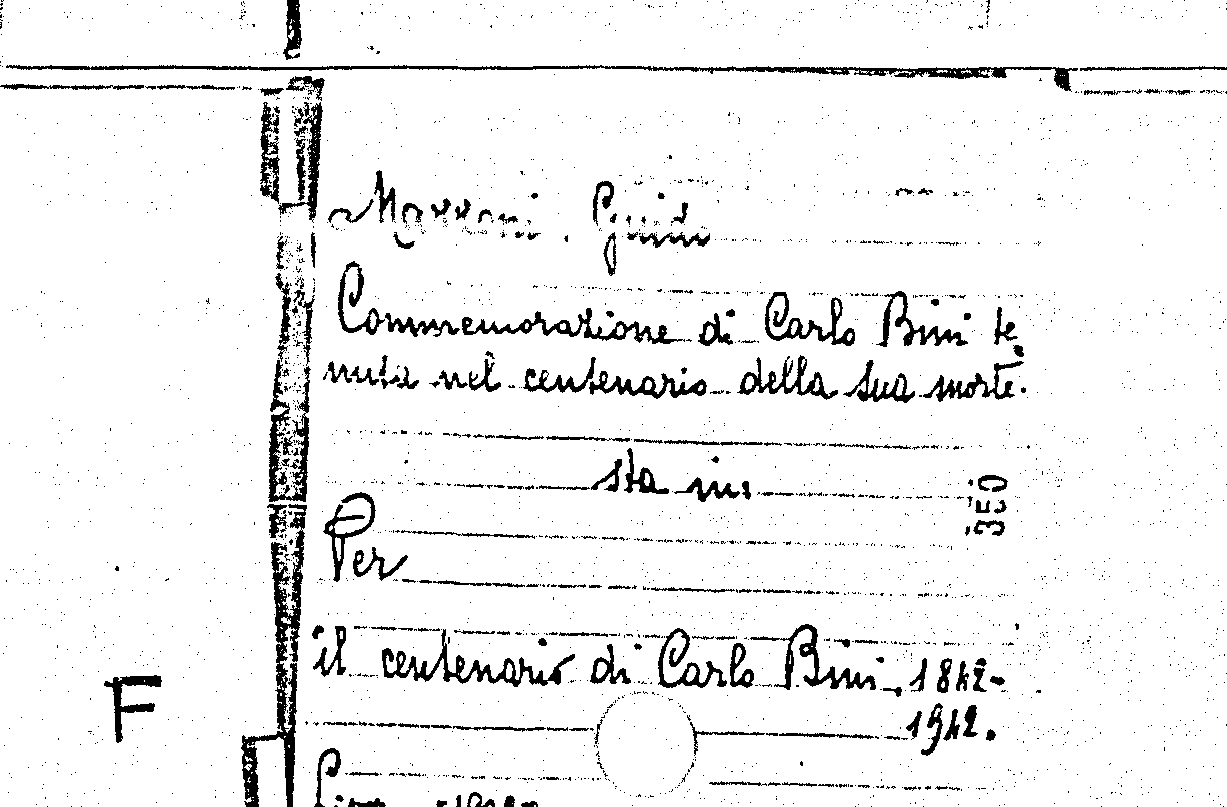 Mazzoni. Guido
Commemorazione di Carlo Bini te
nuta nel centenario della sua morte.
sta in:
350
Per
il centenario di Carlo Bini. 1842-
1942.
F